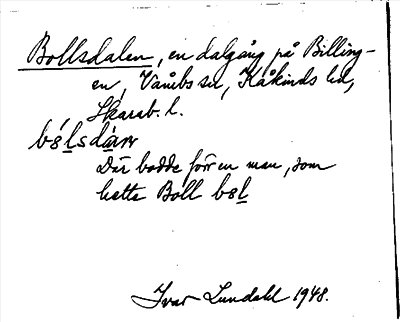 Bollsdalen, en dalgång på Billing-
en, Våmbs sn, Kåkinds hd,
Skarab. l.
bólsdàɳ
Där bodde förr en man, som
hette Boll bol
Ivar Lundahl 1948.